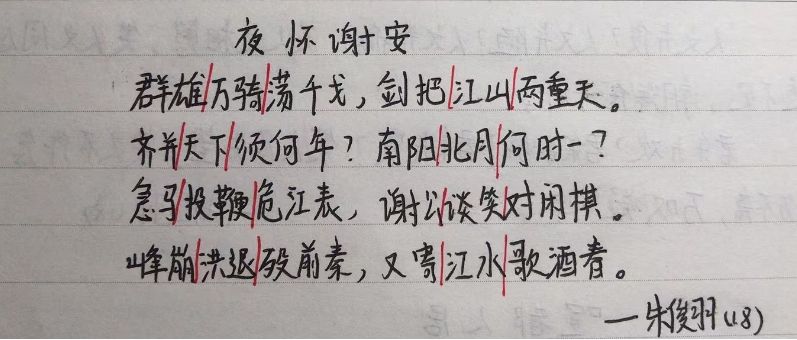 夜怀谢安
群雄万骑荡千戈，剑把江山两重天。
齐并天下须何年？南阳北月何时一？
急马投鞭危江表，谢公谈笑对闲棋。
峰崩洪退殁前秦，又寄江水歌酒春。
—朱俊羽(18)